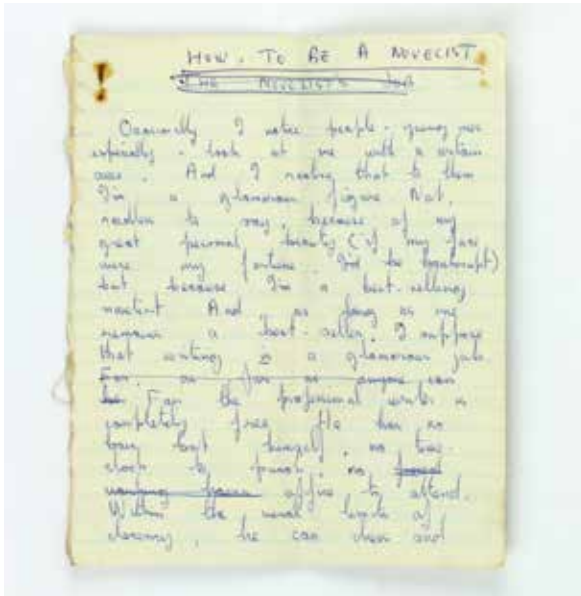 HOW TO BE A NOVELIST
THE NOVELIST'S JOB
Occasionally I notice people - young men
especially - look at me with a certain
awe. And I realise that to them
I'm a glamorous figure. Not,
needless to say, because of my
great personal beauty (if my face
were my fortune I'd be bankrupt)
but because I'm a best-selling
novelist. And as long as one
remains a best-seller, I suppose
that writing is a glamorous job.
For, as far as anyone can
For the professional writer is
completely free. He has no
boss but himself, no time
clock to punch, no
working hours office to attend.
Within the usual limits of
decency, he can dress and